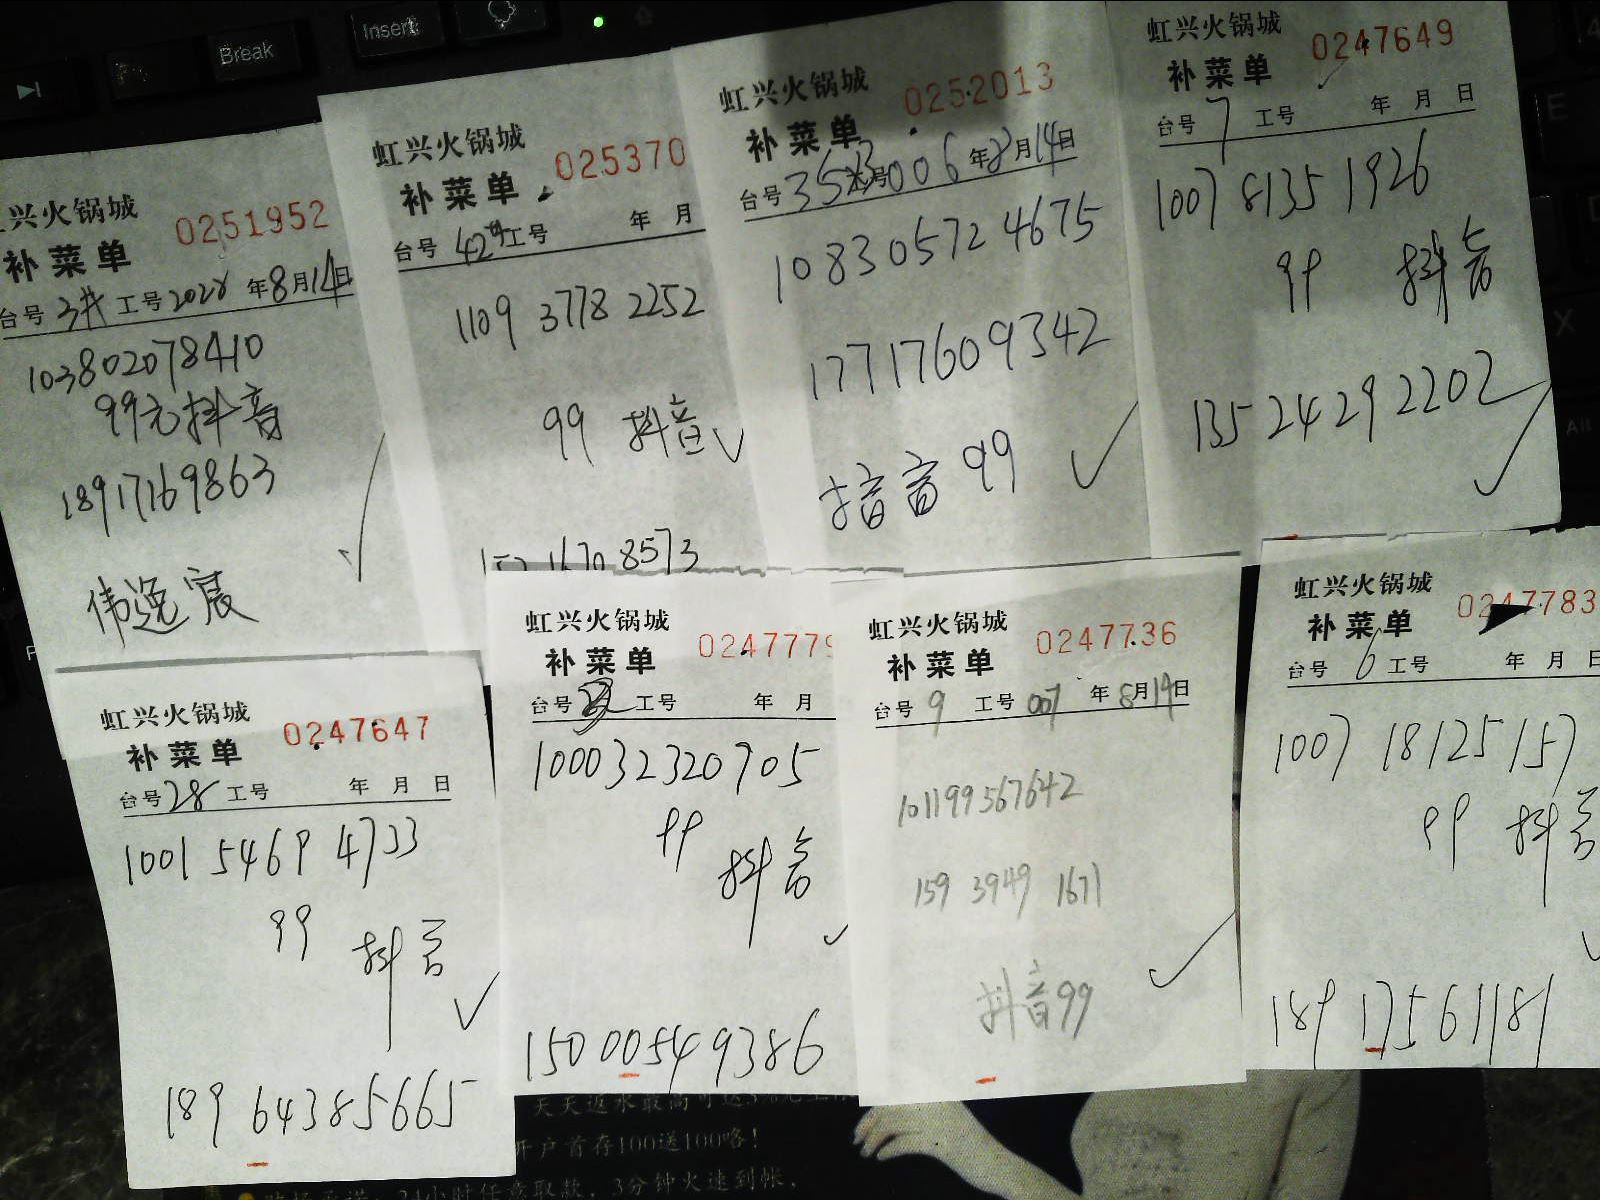 Break
Insert
虹兴火锅城
0251952
补菜单
台号 工号 2028 年8月14日
103802078410
99元抖音
18917169863
虹兴火锅城
025370
补菜单
台号 42 工号 年 月
1109 3778 2252
99 抖音
1670 8573
虹兴火锅城
0252013
补菜单
台号 工号 006 年8月14日
108305724675
17717609342
抖音 99
虹兴火锅城
0247649
补菜单
台号 7 工号 年 月 日
1007 8135 1926
99 抖音
135 24292202
虹兴火锅城
0247647
补菜单
台号 28 工号 年 月 日
1001 5469 4733
99
抖音
189 64385665
虹兴火锅城
024777
补菜单
台号 工号 年 月
100032320705
99
抖音
15000549386
虹兴火锅城
0247736
补菜单
台号 9 工号 007 年 8月14日
101199567642
159 3949 1671
抖音99
虹兴火锅城
0247783
补菜单
台号 6 工号 年 月 日
1007 18125157
99 抖音
189 17561181
天天返水最高可达
开户首存100送100咯！
24小时任意取款，3分钟火速到帐，